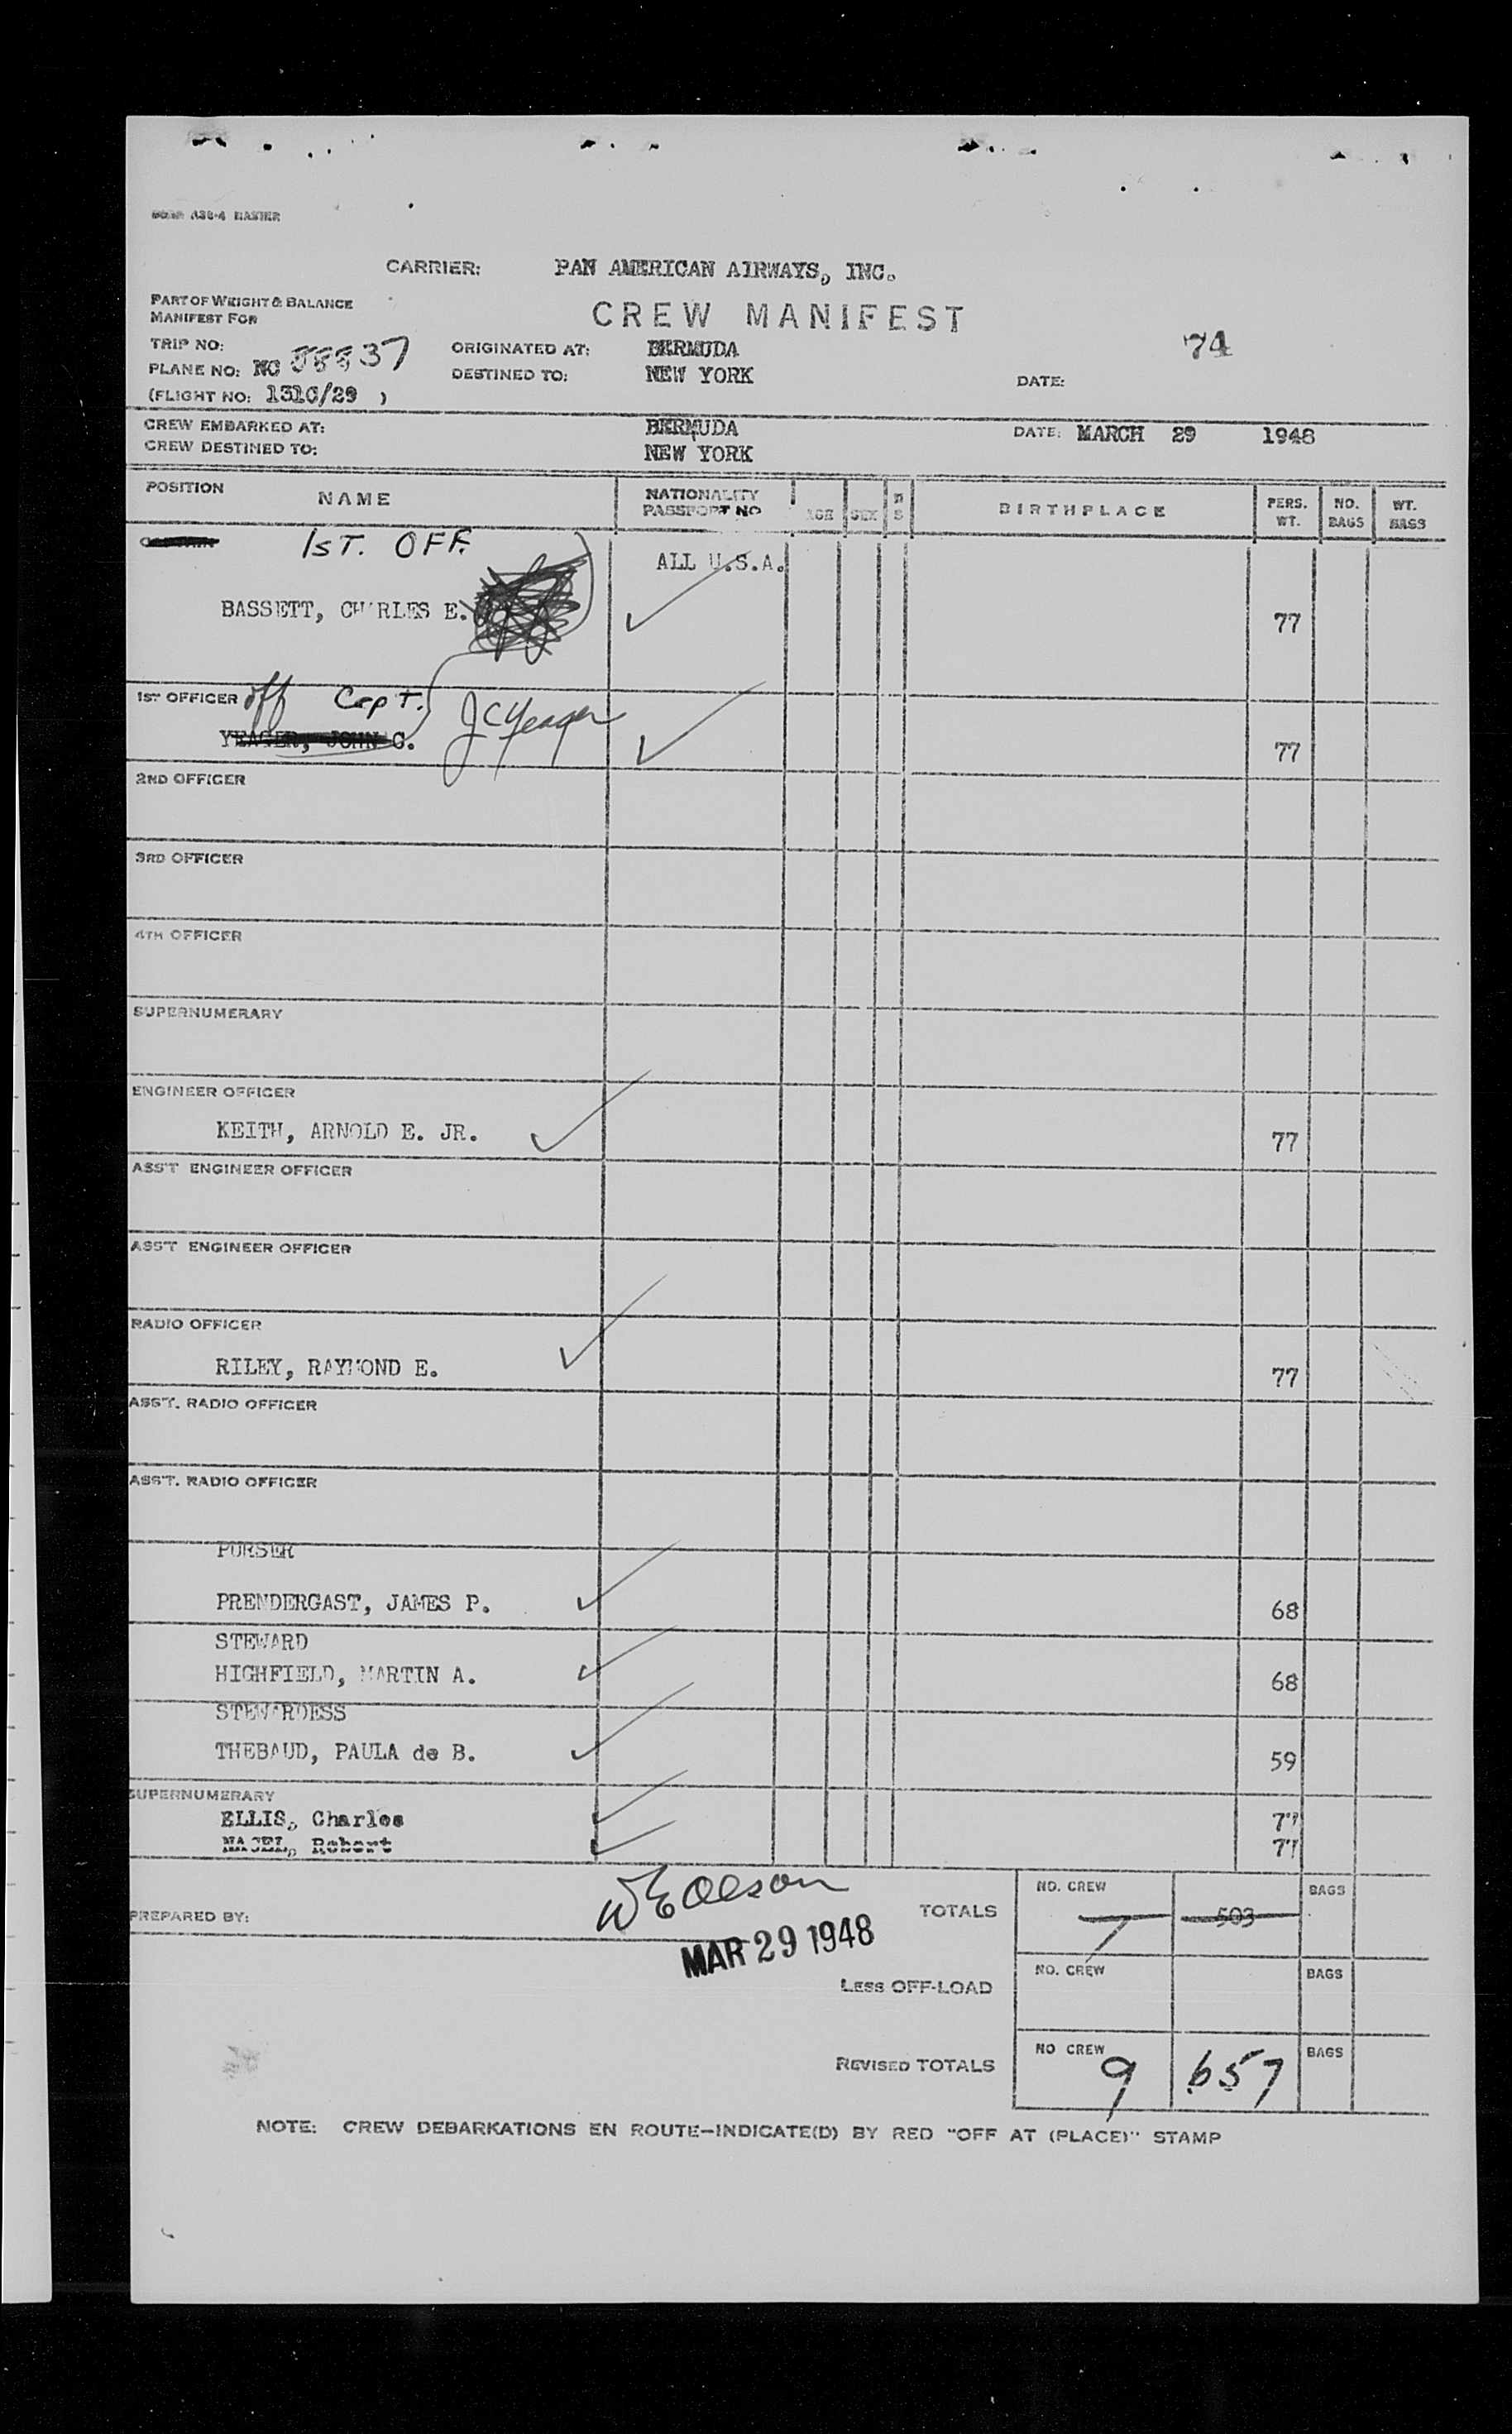 CARRIER: PAN AMERICAN AIRWAYS, INC.
PART OF WEIGHT & BALANCE
MANIFEST FOR
CREW MANIFEST
74
TRIP NO:
PLANE NO: NC 88837
(FLIGHT NO: 131C/29 )
ORIGINATED AT: BERMUDA
DESTINED TO: NEW YORK
DATE:
CREW EMBARKED AT: BERMUDA
CREW DESTINED TO: NEW YORK
DATE: MARCH 29 1948
POSITION NAME NATIONALITY PASSPORT NO AGE SEX BIRTHPLACE PERS. WT. NO. BAGS WT. BAGS
1ST. OFF.
ALL U.S.A.
BASSETT, CHARLES E. 77
1ST OFFICER off Capt.
YEAGER, JOHN C. JCYeager 77
2ND OFFICER
3RD OFFICER
4TH OFFICER
SUPERNUMERARY
ENGINEER OFFICER
KEITH, ARNOLD E. JR. 77
ASS'T ENGINEER OFFICER
ASS'T ENGINEER OFFICER
RADIO OFFICER
RILEY, RAYMOND E. 77
ASS'T. RADIO OFFICER
ASS'T. RADIO OFFICER
PURSER
PRENDERGAST, JAMES P. 68
STEWARD
HIGHFIELD, MARTIN A. 68
STEWARDESS
THEBAUD, PAULA de B. 59
SUPERNUMERARY
ELLIS, Charles 77
Robert 77
PREPARED BY: WEOleson
MAR 29 1948
TOTALS NO. CREW 7 503 BAGS
LESS OFF-LOAD NO. CREW BAGS
REVISED TOTALS NO CREW 9 657 BAGS
NOTE: CREW DEBARKATIONS EN ROUTE-INDICATE(D) BY RED "OFF AT (PLACE)" STAMP